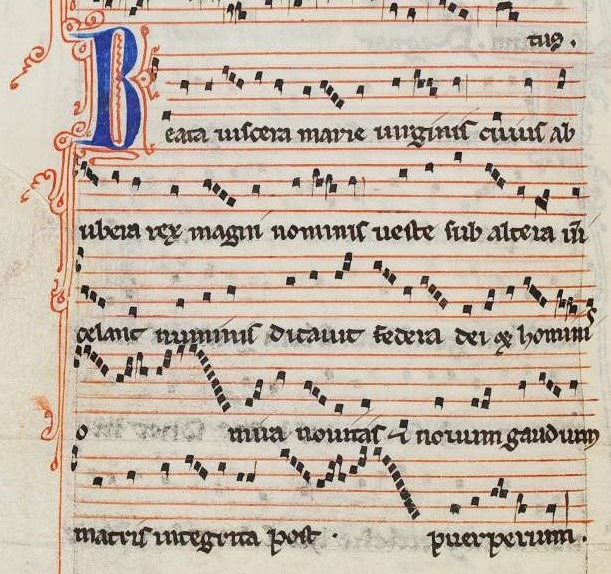 tus.
Beata uiscera marie uirginis cuius ab
ubera rex magni nominis ueste sub altera
celans numinis dictauit federa dei & hominis
o mira nouitas & nouum gaudium
matris integrita post puerperium.